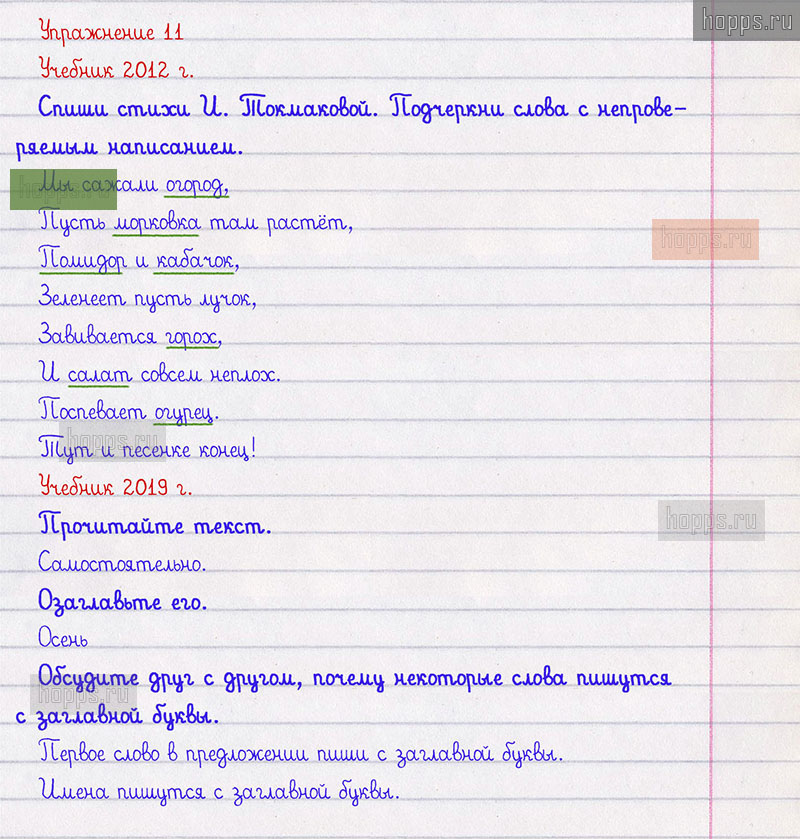 hopps.ru
Упражнение 11
Учебник 2012 г.
Спиши стихи И. Токмаковой. Подчеркни слова с непрове-
ряемым написанием.
Мы сажали огород,
hopps.ru
Пусть морковка там растёт,
hopps.ru
Помидор и кабачок,
Зеленеет пусть лучок,
Завивается горох,
И салат совсем неплох.
Поспевает огурец.
hopps.ru
Тут и песенке конец!
Учебник 2019 г.
hopps.ru
Прочитайте текст.
Самостоятельно.
Озаглавьте его.
Осень
Обсудите друг с другом, почему некоторые слова пишутся
hopps.ru
с заглавной буквы.
Первое слово в предложении пиши с заглавной буквы.
Имена пишутся с заглавной буквы.